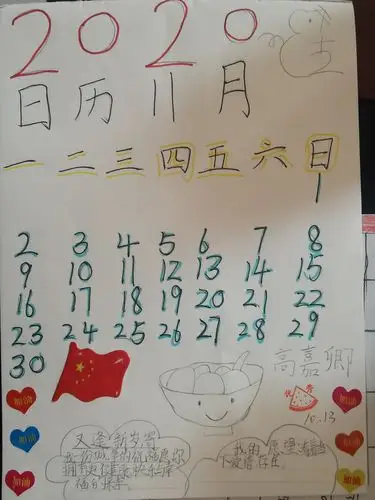 2020
日历11月
一 二 三 四 五 六 日
1
2 3 4 5 6 7 8
9 10 11 12 13 14 15
16 17 18 19 20 21 22
23 24 25 26 27 28 29
30
高嘉卿
优秀
10.13
加油
加油
加油
加油
加油
加油
又逢新岁寄
我的愿望